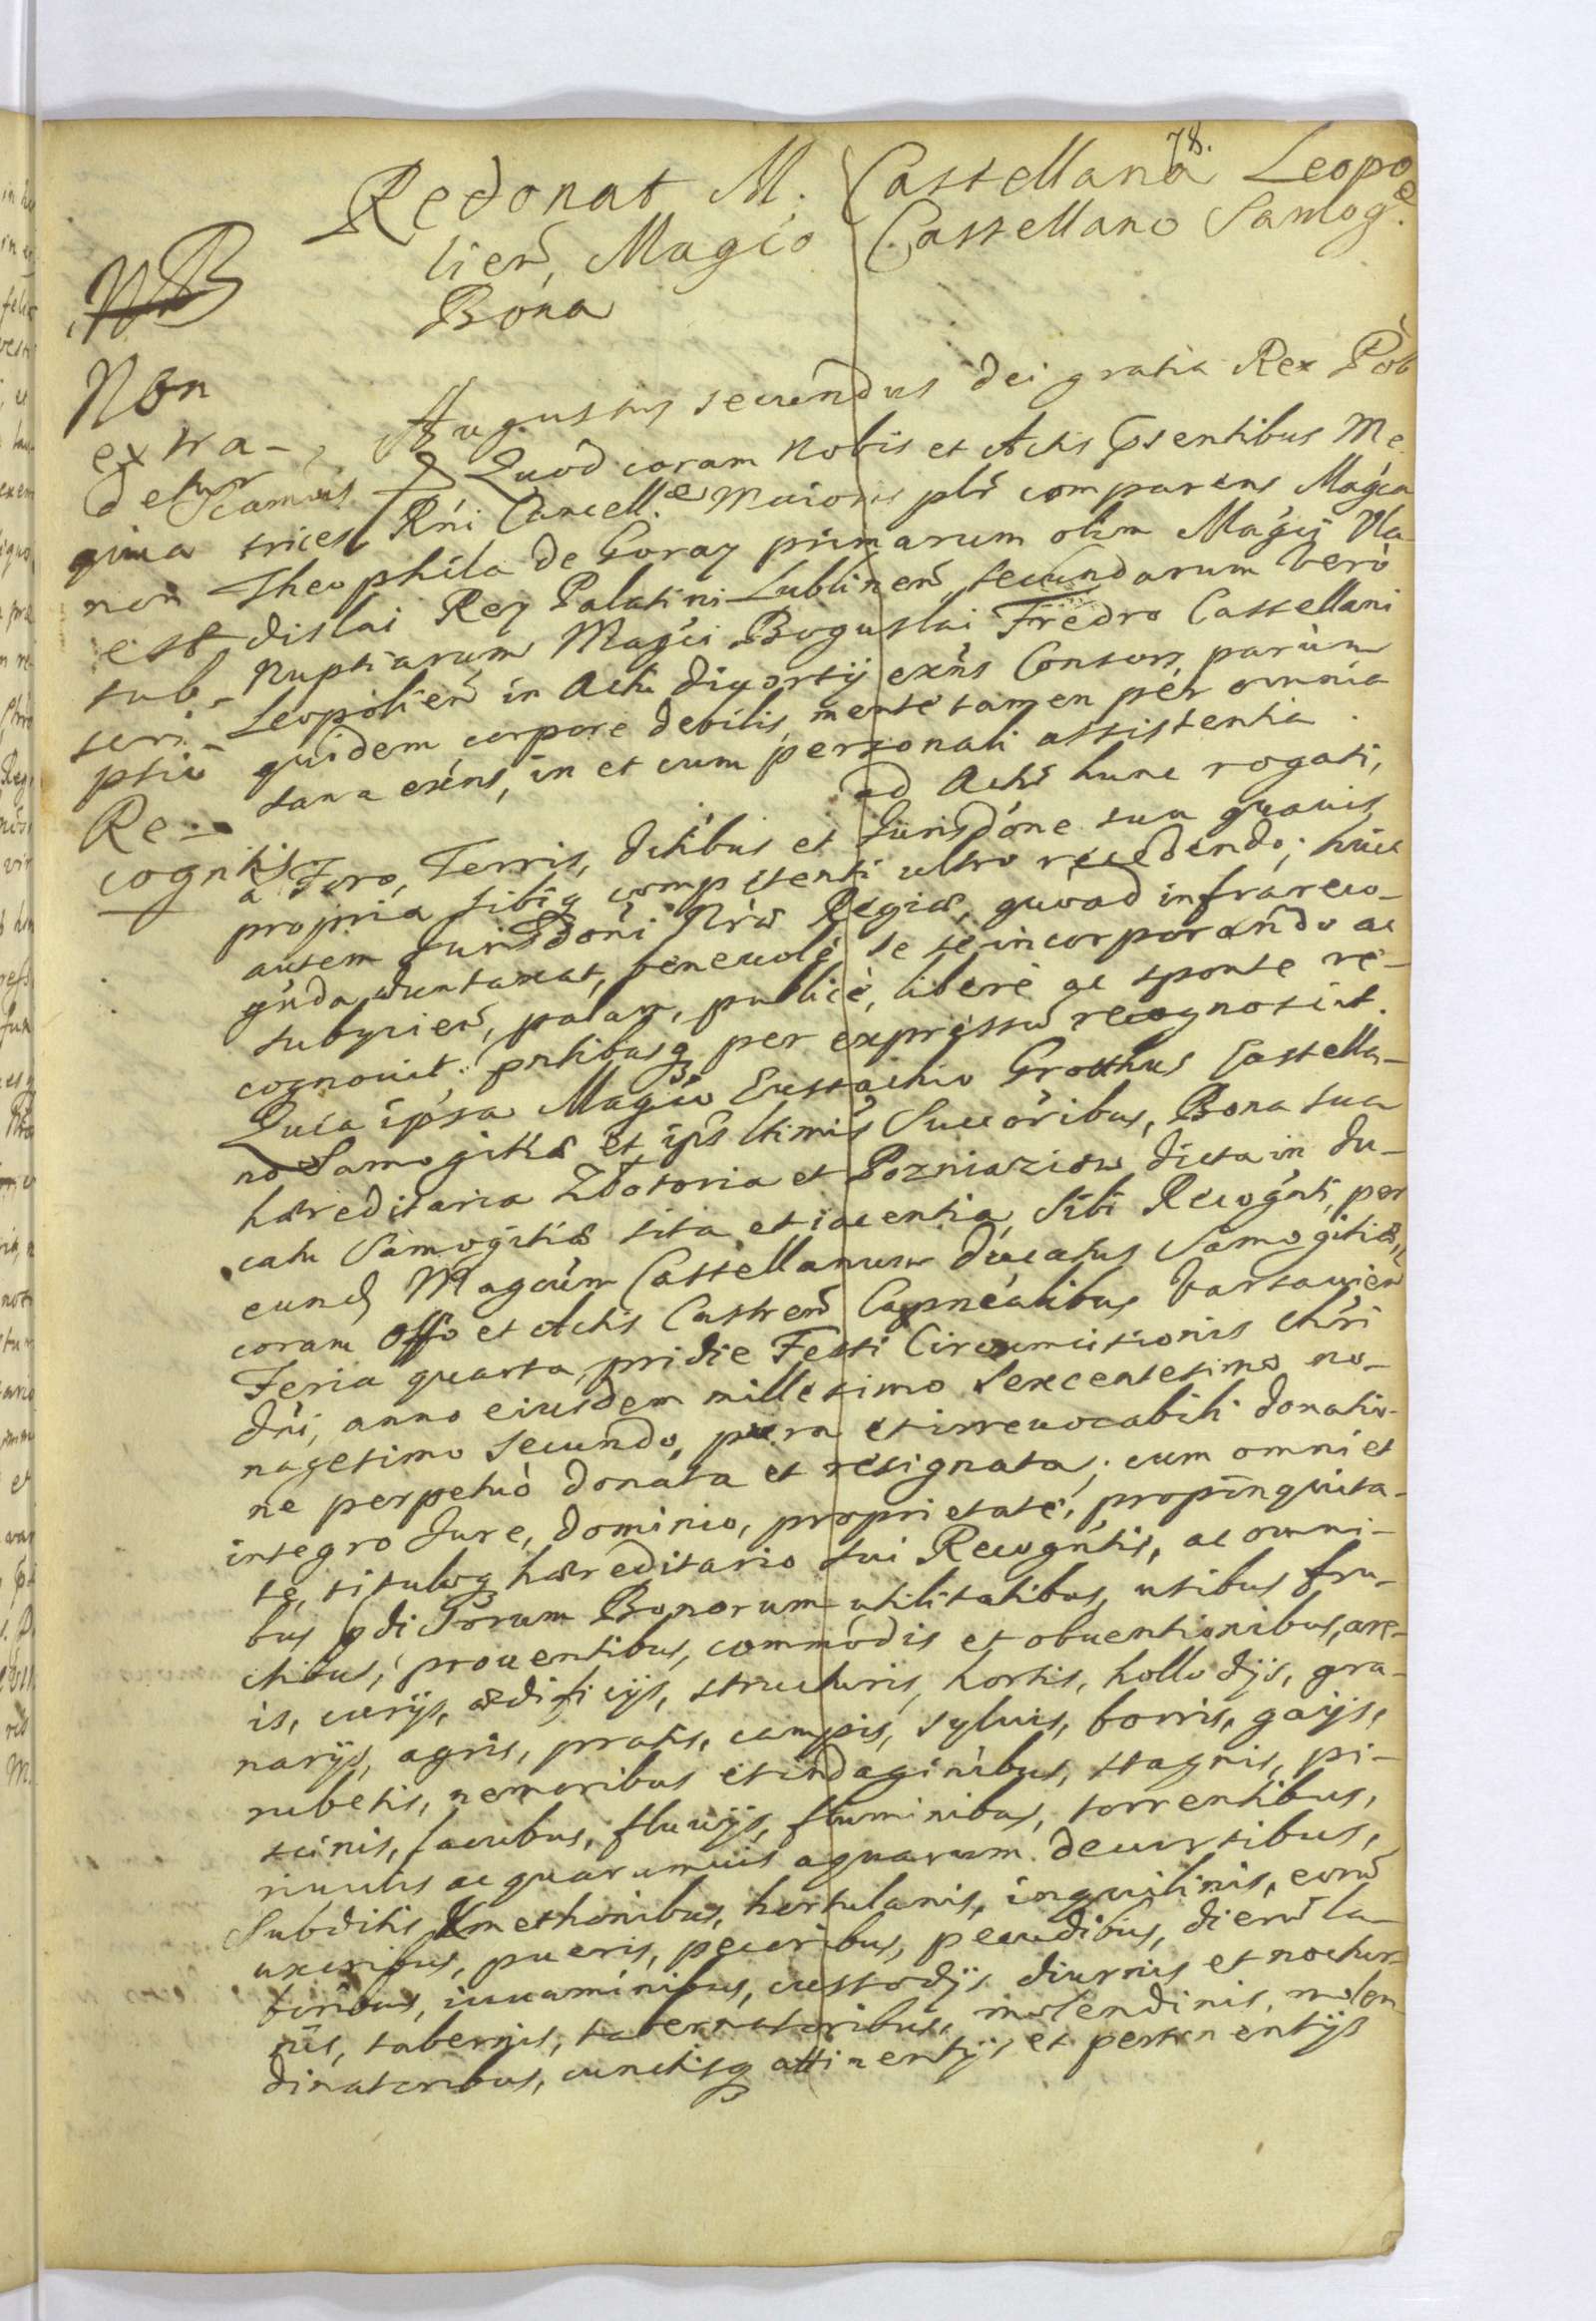 78.
Redonat M. Castellana Leopo
lien, Magco Castellano Samog.
Bona
NB
Non
extra-
detur
quia
non
est
sub-
scri-
ptū
Re-
cognitis
Augustus secundus dei gratia Rex Pol
Quod coram Nobis et Actis psentibus Me
trices Rni Cancell. Maioris plr comparens Magca
Theophila de Goray primarum olim Magci Vla
dislai Rey Palatini Lublinen, secundarum vero
Nuptiarum Magci Boguslai Fredro Castellani
Leopolien in Actu divortij exns Consors, parum
quidem corpore debilis, mente tamen per omnia
sana exens, in et cum personali assistentia
ad Actū hunc rogati,
a Foro, Terris, dctibus et Jurisdone sua quavis
propria sibiq competenti ultro recedendo; huic
autem Jurisdoni Nrae Regiae, quoad infrareco-
gnda duntaxat, benevole se se incorporando ac
subycien, palam, publice, libere ac sponte re-
cognovit. pntibusq per expressū recognoscit.
Quia ipsa Magco Eustachio Grothus Castella-
no Samogitiae et ips ltimis Succoribus, Bona sua
haereditaria Zlotoria et Pozniazion dicta in du-
catu Samogitiae sita et iacentia, sibi Recognti, per
eund Magcum Castellanum Ducatus Samogitiae,
coram Offo et Actis Castren Capnealibus Varsavien
Feria quarta, pridie Festi Circumcisionis Chri
dni, anno eiusdem millesimo sexcentesimo no-
nagesimo secundo, pura et irrevocabili donatio-
ne perpetuo donata et resignata; cum omni et
integro Jure, dominio, proprietate, propinquita-
te, tituloq haereditario sui Recogntis, ac omni-
bus pdictorum Bonorum utilitatibus, usibus fru-
ctibus, proventibus, commodis et obventionibus, are-
is, curijs, aedificijs, structuris, hortis, hollodijs, gra-
narijs, agris, pratis, campis, sylvis, borris, gaijs,
rubetis, nemoribus et indaginibus, stagnis, pi-
scinis, lacubus, fluvijs, fluminibus, torrentibus,
rivulis ac quarumvis aquarum decursibus,
Subditis Kmethonibus, hortulanis, inquilinis, eorū
uxoribus, pueris, pecoribus, pecudibus, dierū la-
boribus, iuvaminibus, custodijs diurnis et noctur-
nis, tabernis, tabernatoribus, molendinis, molen-
dinatoribus, cunctisq attinentijs et pertinentijs